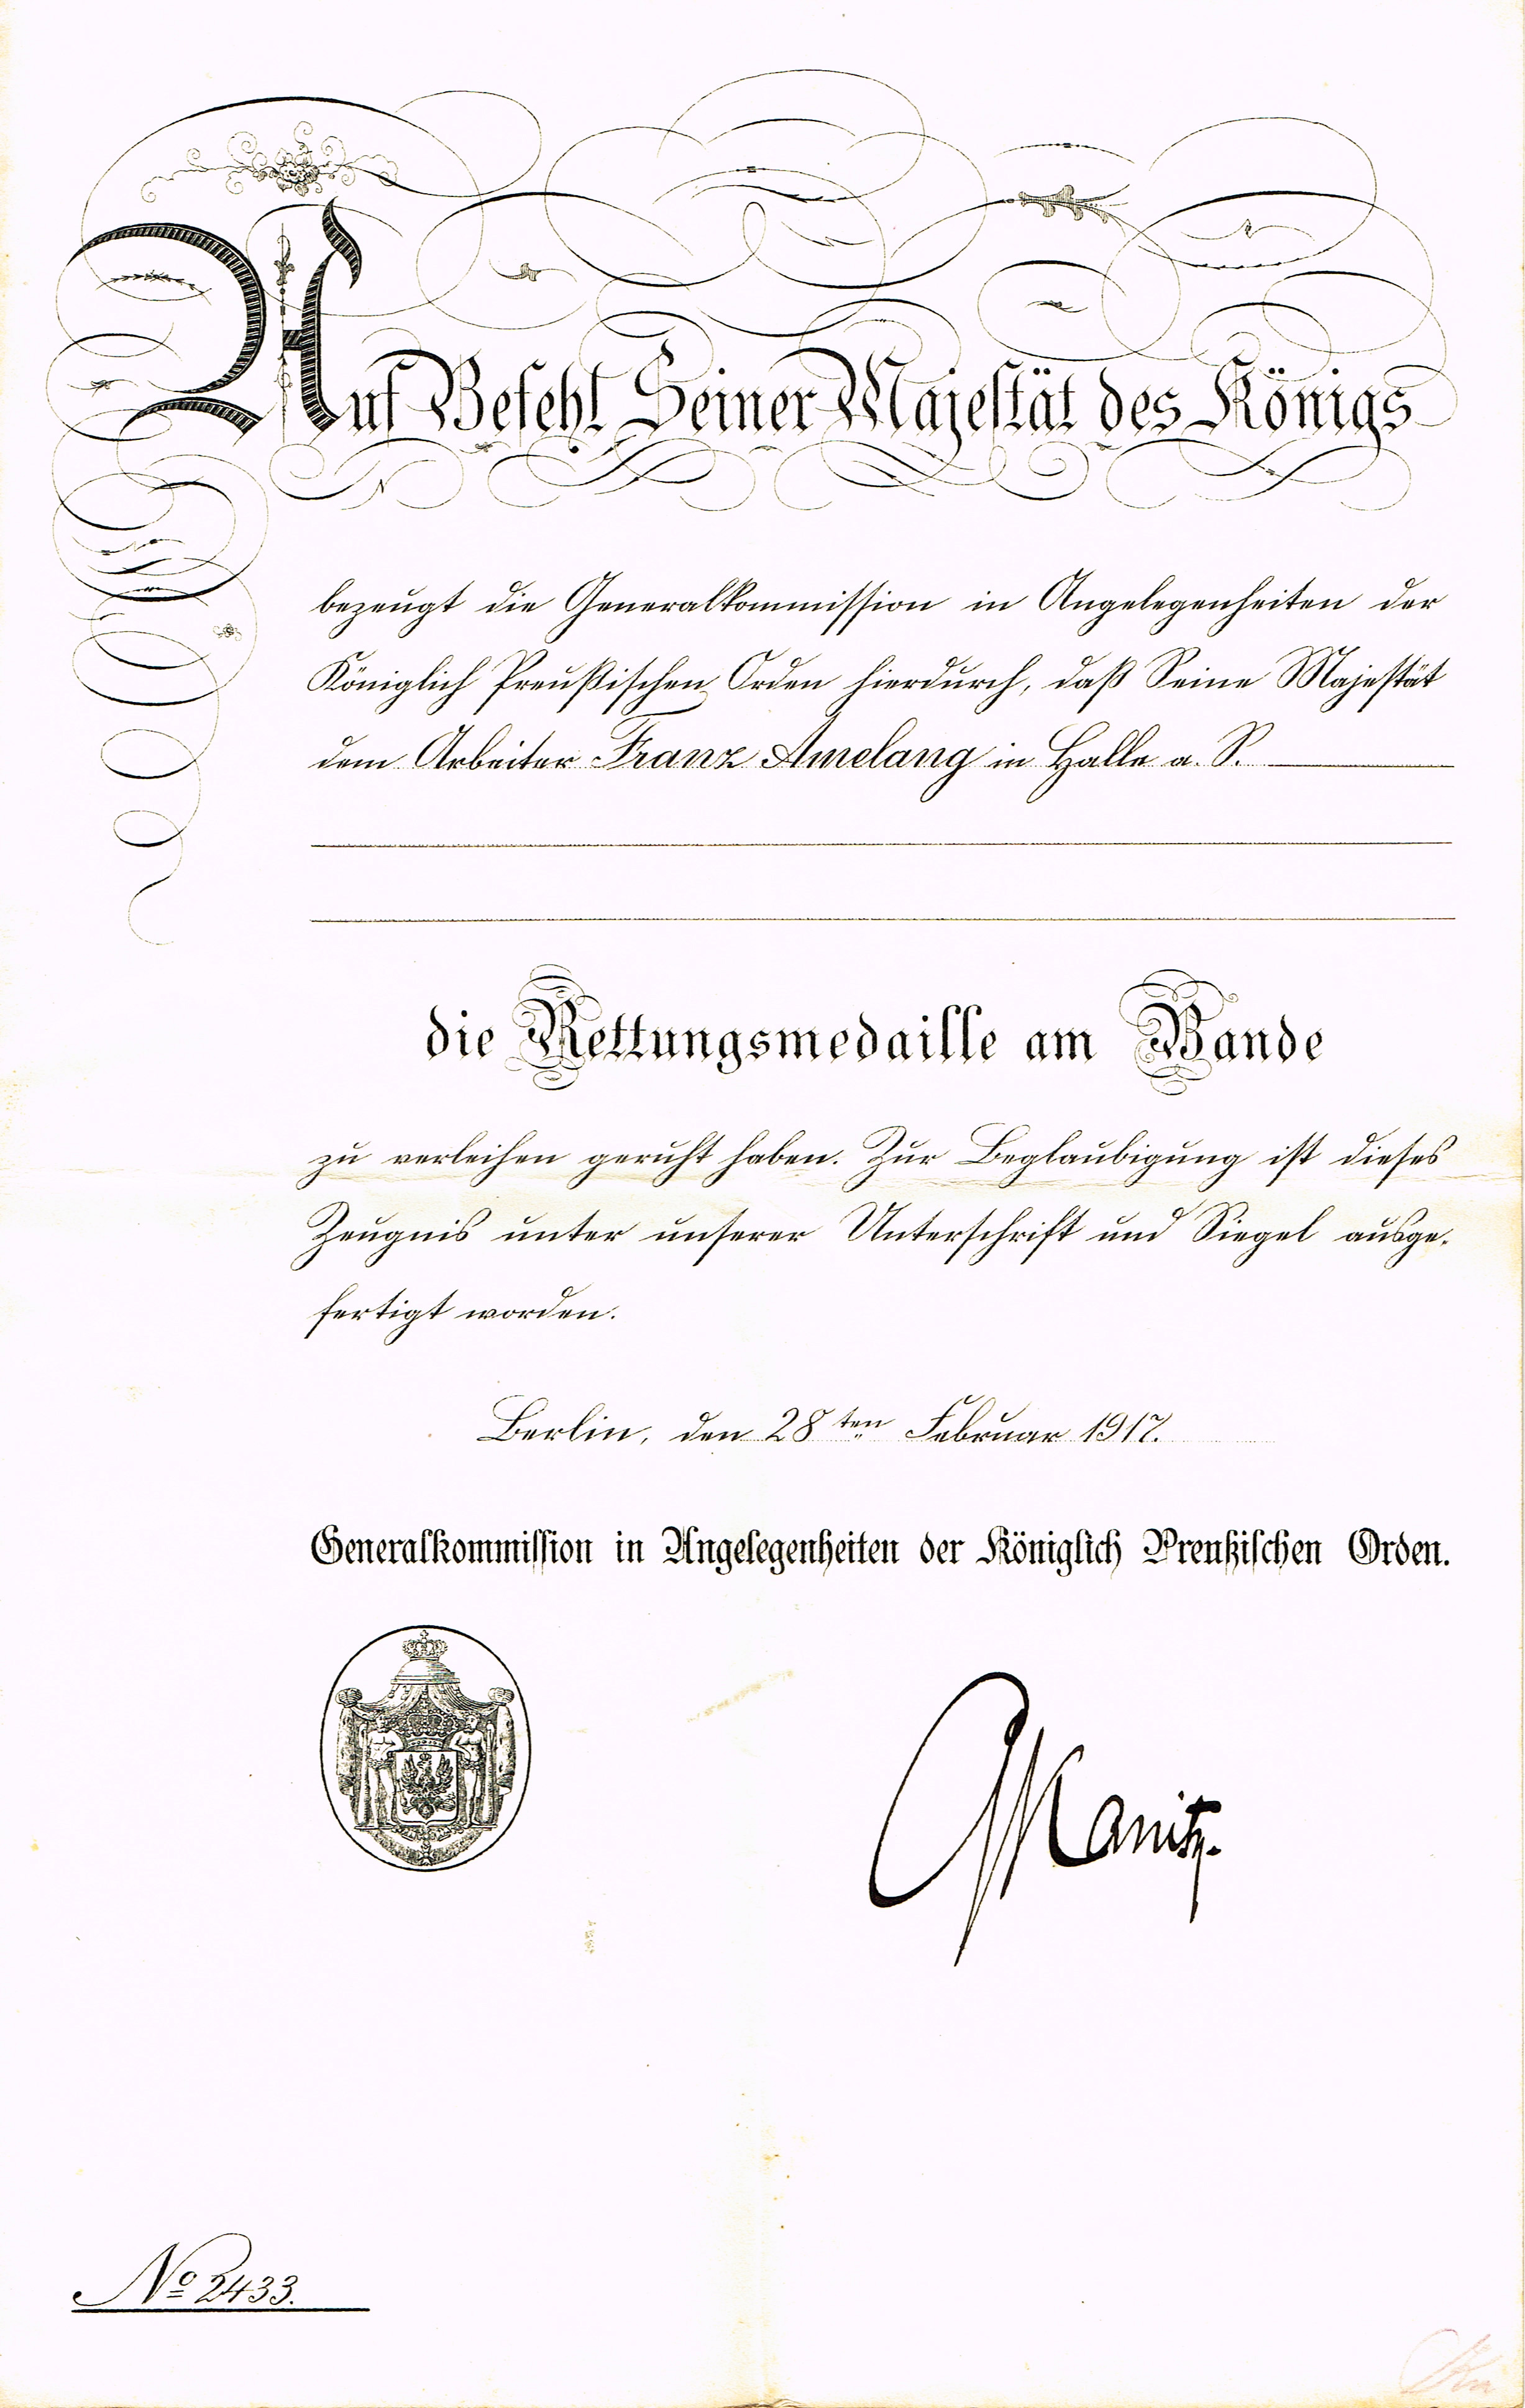 Auf Befehl Seiner Majestät des Königs
bezeugt die Generalkommission in Angelegenheiten der
Königlich Preußischen Orden hierdurch, daß Seine Majestät
dem Arbeiter Franz Amelang in Halle a. S.
die Rettungsmedaille am Bande
zu verleihen geruht haben. Zur Beglaubigung ist dieses
Zeugnis unter unserer Unterschrift und Siegel ausge-
fertigt worden.
Berlin, den 28ten Februar 1917.
Generalkommission in Angelegenheiten der Königlich Preußischen Orden.
Kanitz.
No 2433.